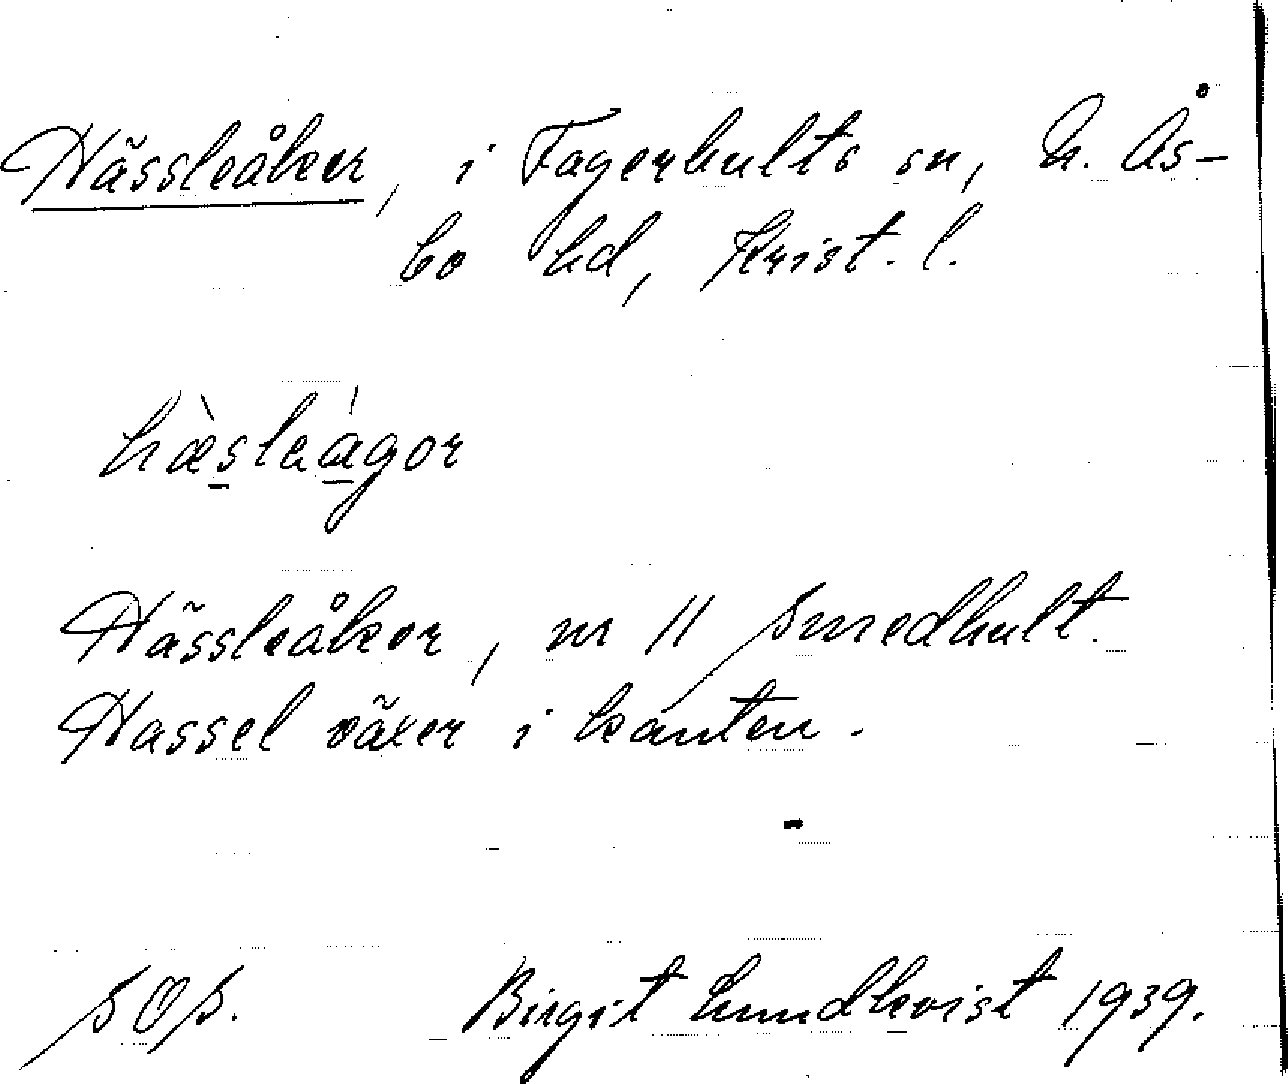 Hässleåker, i Fagerhults sn, N. Ås-
bo hd, Krist. l.
hæ̀sleágor
Hässleåker, nr 11 Smedhult.
Hassel växer i kanten.
SOS. Birgit Lundkvist 1939.